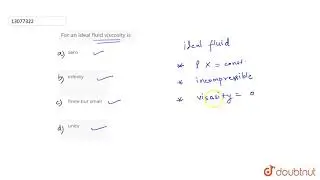 13077322
For an ideal fluid viscosity is
a) zero
b) infinity
c) finite but small
d) unity
ideal fluid
* ρ = const.
* incompressible
* viscosity = 0
doubtnut